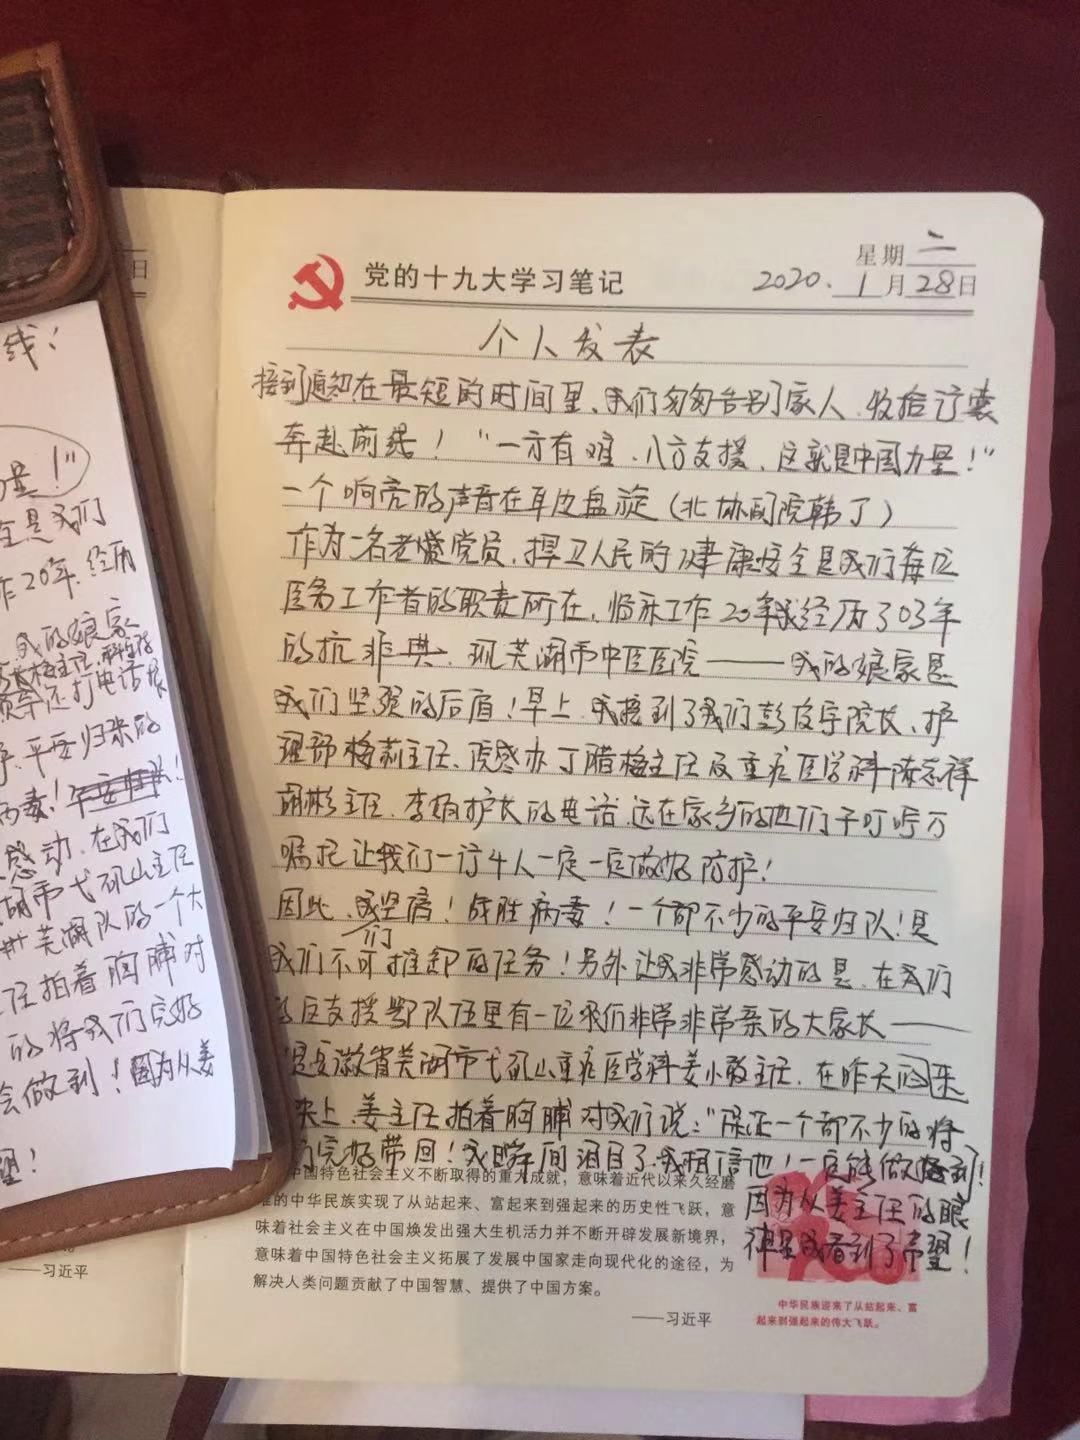 线！
量！"
全是我们
作20年.经历
我的娘家
领导还打电话根
平安归来的
病毒！
感动.在我们
湖市弋矶山主任
芜湖队的一个大
任拍着胸脯对
的将我们完好
会做到！因为从姜
望！
——习近平
日
党的十九大学习笔记
星期二
2020.1月28日
个人发表
接到通知在最短的时间里、我们匆匆告别家人.收拾行囊
奔赴前线！"一方有难.八方支援.这就是中国力量！"
一个响亮的声音在耳边盘旋(北协副院韩丁)
作为一名老党员.捍卫人民的健康安全是我们每位
医务工作者的职责所在.临床工作20年我经历了03年
的抗非典.现芜湖市中医医院——我的娘家是
我们坚强的后盾！早上.我接到了我们彭俊宇院长、护
理部梅莉主任、院感办丁腊梅主任及重症医学科陈志祥
胡彬主任.李娟护长的电话.远在家乡的他们千叮咛万
嘱托让我们一行4人一定一定做好防护！
因此.我们坚信！战胜病毒！一个都不少的平安归队！是
我们不可推卸的任务！另外让我非常感动的是.在我们
医支援鄂队伍里有一位我们非常非常亲的大家长——
是安徽省芜湖市弋矶山重症医学科姜小敢主任.在昨天回来
车上.姜主任拍着胸脯对我们说："保证一个都不少的将
们完好带回！我瞬间泪目了.我相信他！一定能做到！
因为从姜主任的眼
神里我看到了希望！
中国特色社会主义不断取得的重大成就，意味着近代以来久经磨
难的中华民族实现了从站起来、富起来到强起来的历史性飞跃，意
味着社会主义在中国焕发出强大生机活力并不断开辟发展新境界，
意味着中国特色社会主义拓展了发展中国家走向现代化的途径，为
解决人类问题贡献了中国智慧、提供了中国方案。
——习近平
中华民族迎来了从站起来、富
起来到强起来的伟大飞跃。